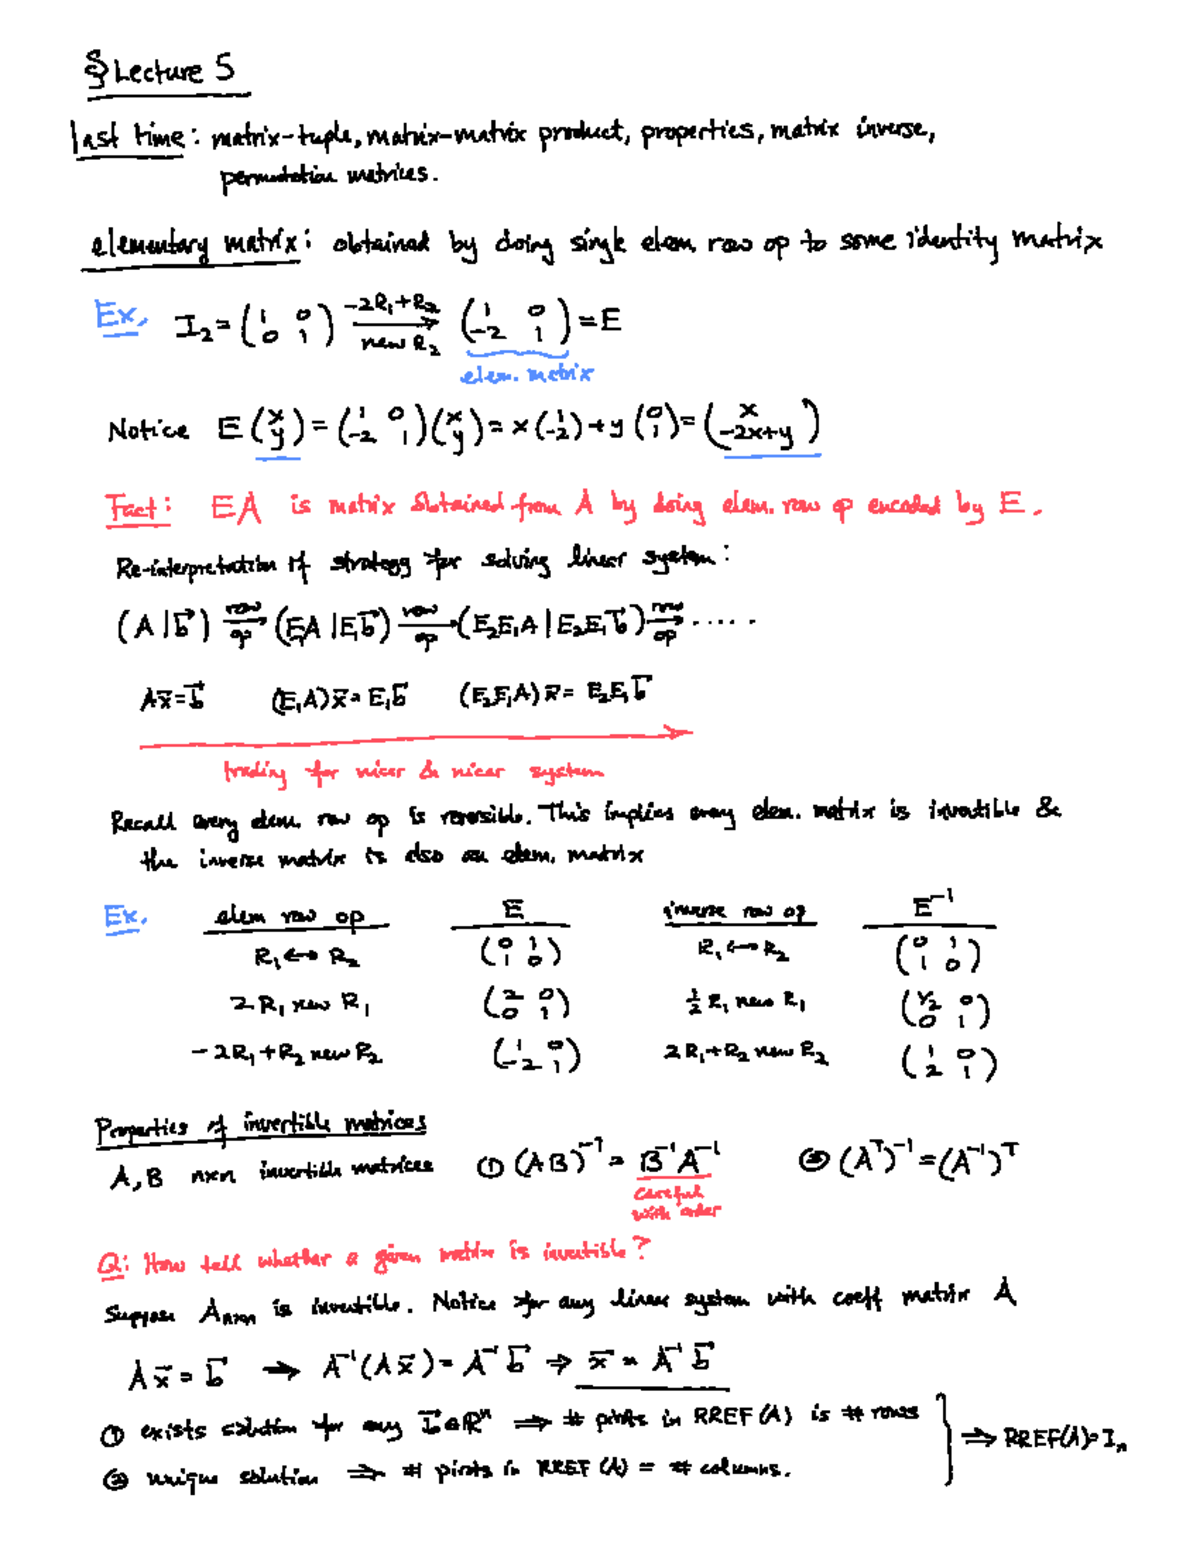 § Lecture 5
last time: matrix-tuple, matrix-matrix product, properties, matrix inverse,
permutation matrices.
elementary matrix: obtained by doing single elem. row op to some identity matrix
Ex. I₂ = (1 0; 0 1) −2R₁+R₂ → new R₂ (1 0; −2 1) = E
elem. matrix
Notice E (x; y) = (1 0; −2 1)(x; y) = x(1; −2) + y(0; 1) = (x; −2x+y)
Fact: EA is matrix obtained from A by doing elem. row op encoded by E.
Re-interpretation of strategy for solving linear system:
(A | b⃗) row op → (E₁A | E₁b⃗) row op → (E₂E₁A | E₂E₁b⃗) row op → .....
Ax⃗ = b⃗ (E₁A)x⃗ = E₁b⃗ (E₂E₁A)x⃗ = E₂E₁b⃗
trading for nicer & nicer system
Recall every elem. row op is reversible. This implies every elem. matrix is invertible &
the inverse matrix is also an elem. matrix
Ex. elem row op E inverse row op E⁻¹
R₁ ↔ R₂ (0 1; 1 0) R₁ ↔ R₂ (0 1; 1 0)
2R₁ new R₁ (2 0; 0 1) ½ R₁ new R₁ (½ 0; 0 1)
−2R₁+R₂ new R₂ (1 0; −2 1) 2R₁+R₂ new R₂ (1 0; 2 1)
Properties of invertible matrices
A, B n×n invertible matrices ① (AB)⁻¹ = B⁻¹A⁻¹ ② (Aᵀ)⁻¹ = (A⁻¹)ᵀ
careful
with order
Q: How tell whether a given matrix is invertible?
Suppose Aₙₓₙ is invertible. Notice for any linear system with coeff matrix A
Ax⃗ = b⃗ → A⁻¹(Ax⃗) = A⁻¹b⃗ ⇒ x⃗ = A⁻¹b⃗
① exists solution for any b⃗ ∈ ℝⁿ ⇒ # pivots in RREF(A) is # rows
② unique solution ⇒ # pivots in RREF(A) = # columns.
} ⇒ RREF(A) = Iₙ